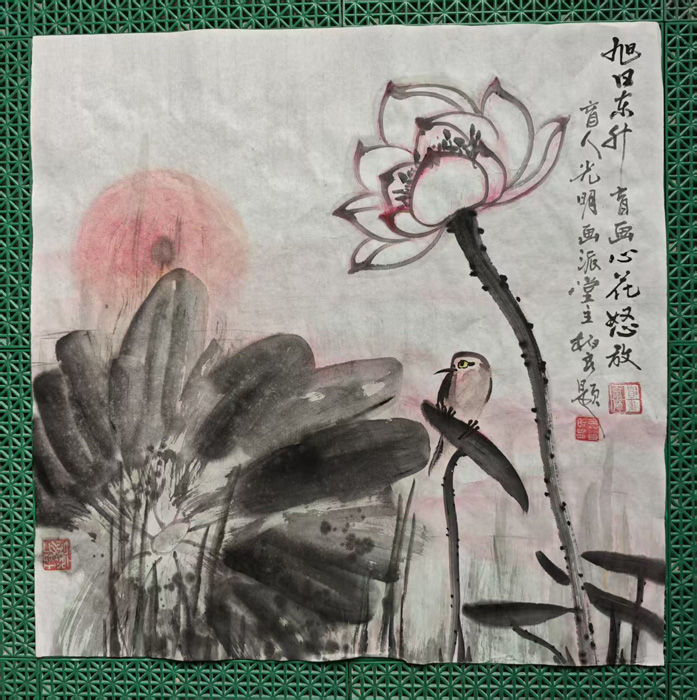 旭日东升 盲画心花怒放
盲人光明画派堂主 题